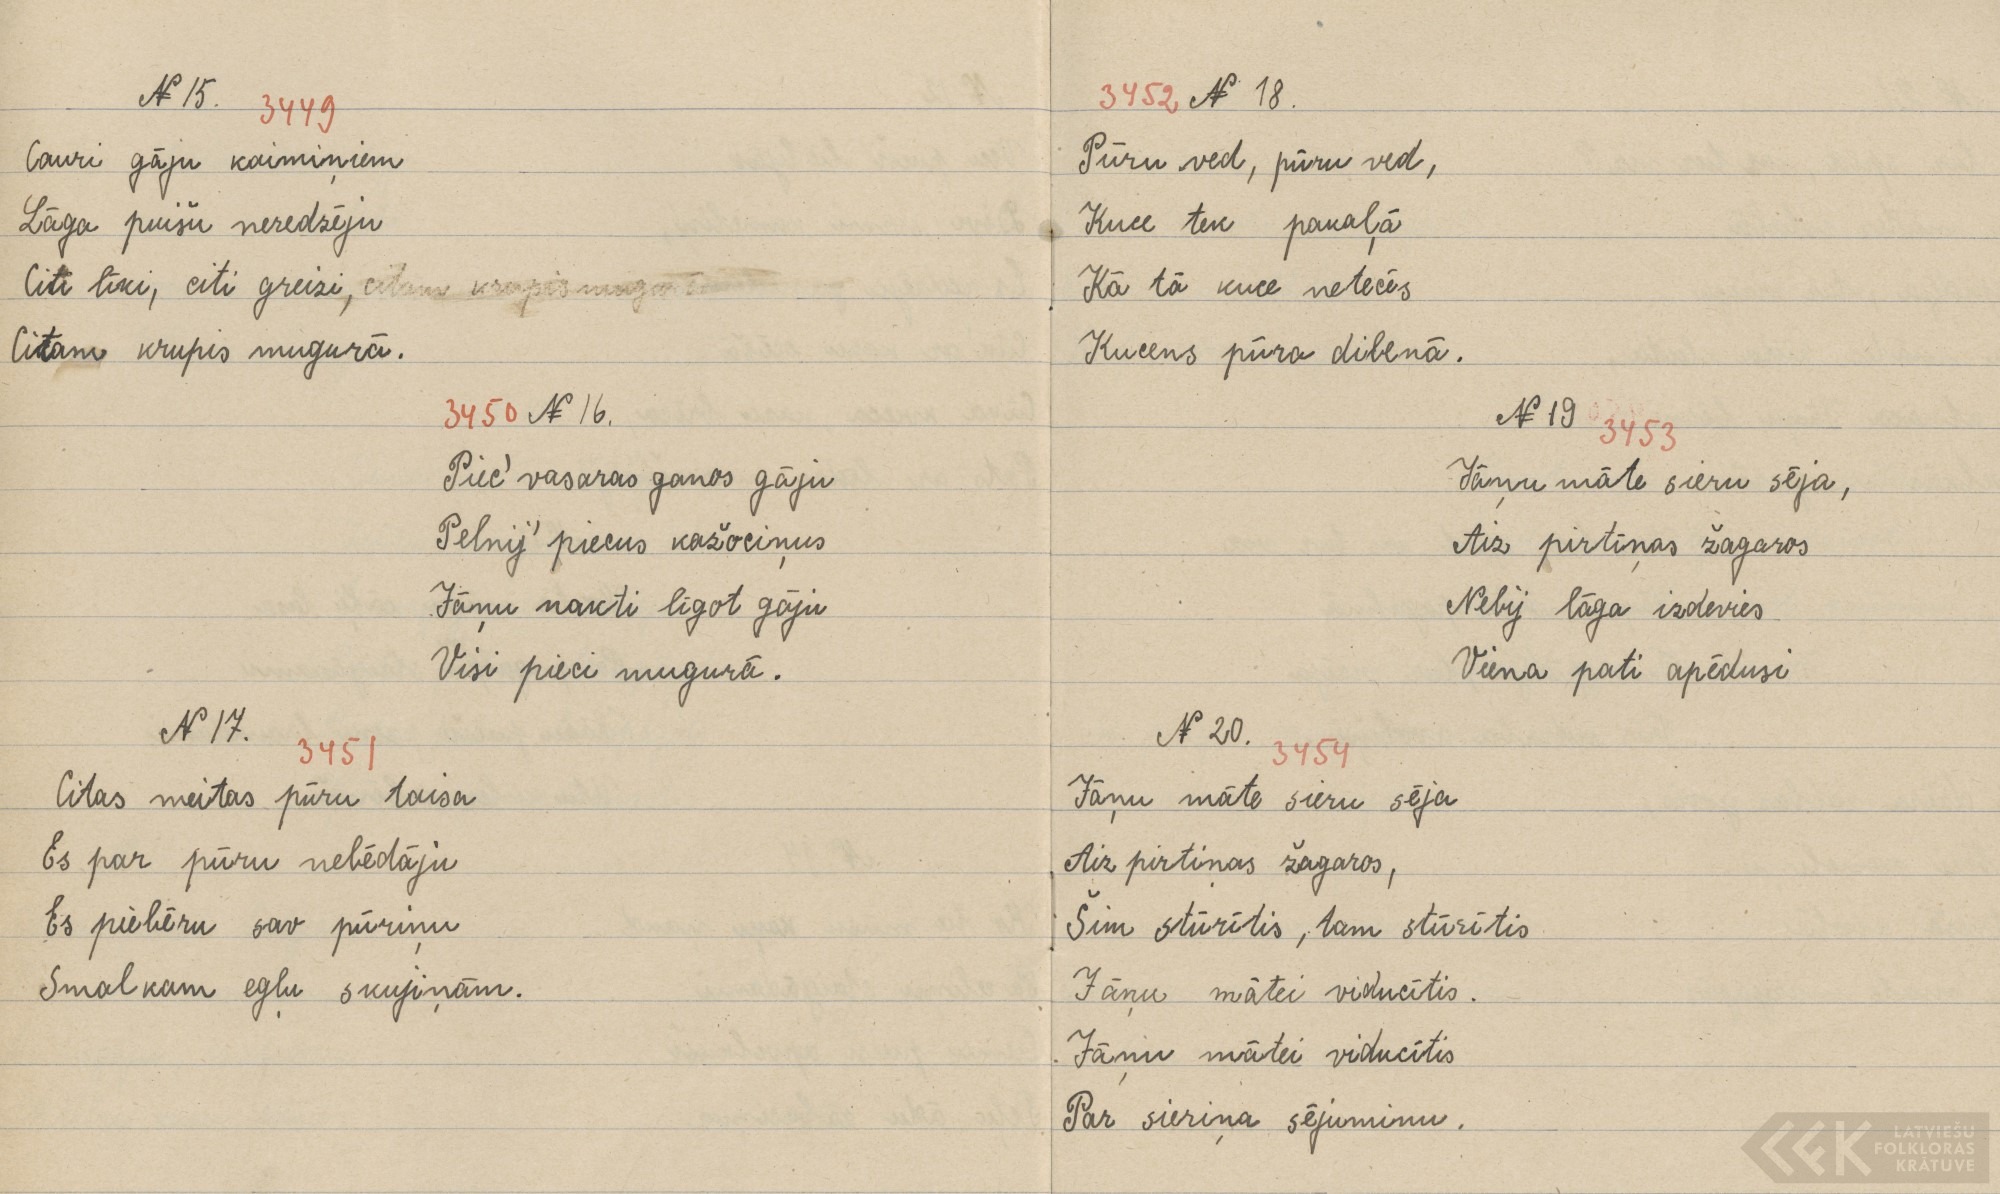 № 15. 3449
Cauri gāju kaimiņiem
Lāga puišu neredzēju
Citi līki, citi greizi, citam krupis mugurā
Citam krupis mugurā.
3450 № 16.
Piec' vasaras ganos gāju
Pelnij' piecus kažociņus
Jāņu nakti līgot gāju
Visi pieci mugurā.
№ 17. 3451
Citas meitas pūru taisa
Es par pūru nebēdāju
Es piebēru sav pūriņu
Smalkam egļu skujiņām.
3452 № 18.
Pūru ved, pūru ved,
Kuce tek pakaļā
Kā tā kuce netecēs
Kucens pūra dibenā.
№ 19 3453
Jāņu māte sieru sēja,
Aiz pirtiņas žagaros
Nebij lāga izdevies
Viena pati apēdusi
№ 20. 3454
Jāņu māte sieru sēja
Aiz pirtiņas žagaros,
Šim stūrītis, tam stūrītis
Jāņu mātei viducītis.
Jāņu mātei viducītis
Par sieriņa sējuminu.
LATVIEŠU
FOLKLORAS
KRĀTUVE